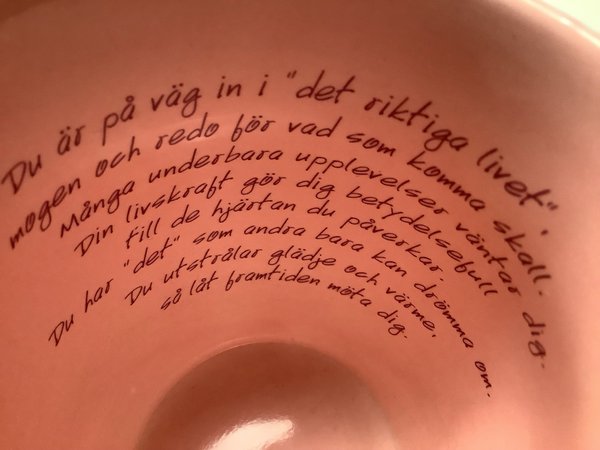 Du är på väg in i "det riktiga livet",
mogen och redo för vad som komma skall.
Många underbara upplevelser väntar dig.
Din livskraft gör dig betydelsefull
till de hjärtan du påverkar.
Du har "det" som andra bara kan drömma om.
Du utstrålar glädje och värme,
så låt framtiden möta dig.